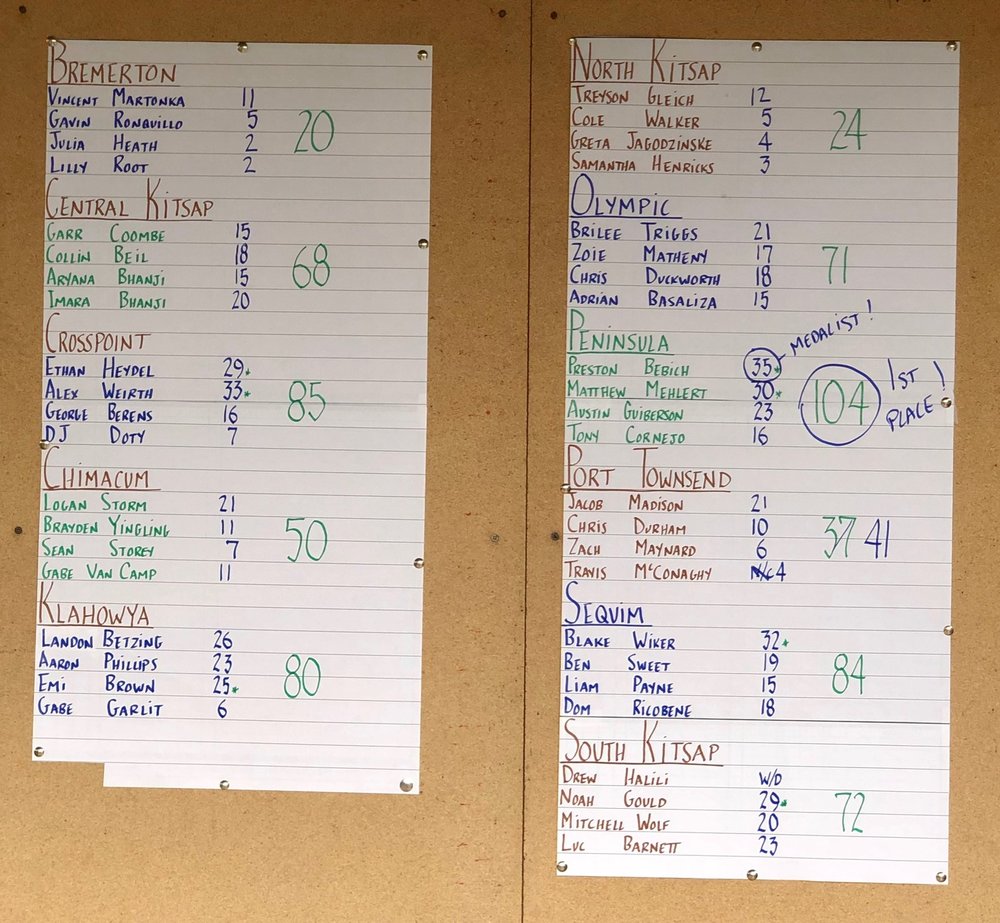 BREMERTON
VINCENT MARTONKA 11
GAVIN RONQUILLO 5
JULIA HEATH 2
LILLY ROOT 2
20
CENTRAL KITSAP
GARR COOMBE 15
COLLIN BEIL 18
ARYANA BHANJI 15
IMARA BHANJI 20
68
CROSSPOINT
ETHAN HEYDEL 29*
ALEX WEIRTH 33*
GEORGE BERENS 16
DJ DOTY 7
85
CHIMACUM
LOGAN STORM 21
BRAYDEN YINGLING 11
SEAN STOREY 7
GABE VAN CAMP 11
50
KLAHOWYA
LANDON BETZING 26
AARON PHILLIPS 23
EMI BROWN 25*
GABE GARLIT 6
80
NORTH KITSAP
TREYSON GLEICH 12
COLE WALKER 5
GRETA JAGODZINSKE 4
SAMANTHA HENRICKS 3
24
OLYMPIC
BRILEE TRIGGS 21
ZOIE MATHENY 17
CHRIS DUCKWORTH 18
ADRIAN BASALIZA 15
71
PENINSULA
PRESTON BEBICH 35* MEDALIST!
MATTHEW MEHLERT 30*
AUSTIN GUIBERSON 23
TONY CORNEJO 16
104 1ST PLACE!
PORT TOWNSEND
JACOB MADISON 21
CHRIS DURHAM 10
ZACH MAYNARD 6
TRAVIS McCONAGHY N/C 4
37 41
SEQUIM
BLAKE WIKER 32*
BEN SWEET 19
LIAM PAYNE 15
DOM RICOBENE 18
84
SOUTH KITSAP
DREW HALILI W/D
NOAH GOULD 29*
MITCHELL WOLF 20
LUC BARNETT 23
72